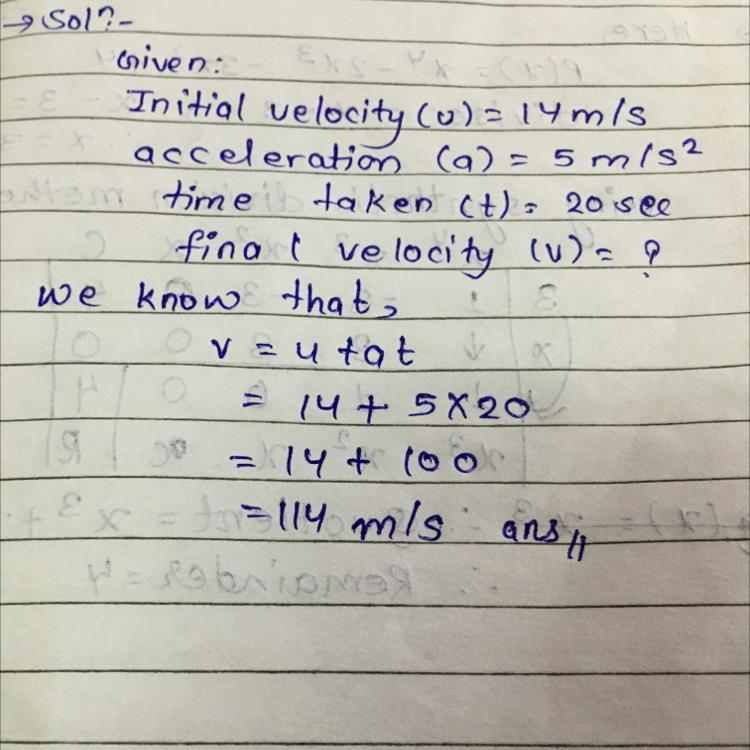 → Sol?-
Given:
Initial velocity (u) = 14 m/s
acceleration (a) = 5 m/s²
time taken (t) = 20 sec
final velocity (v) = ?
we know that,
v = u + at
= 14 + 5 × 20
= 14 + 100
= 114 m/s ans,,